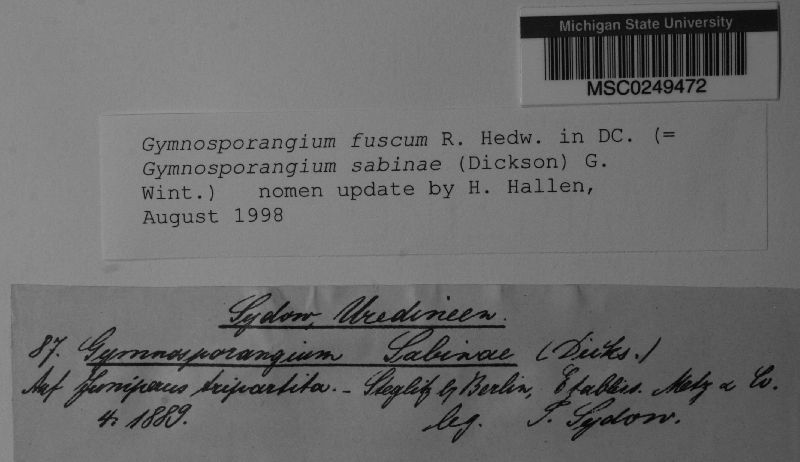 Michigan State University
MSC0249472
Gymnosporangium fuscum R. Hedw. in DC. (=
Gymnosporangium sabinae (Dickson) G.
Wint.) nomen update by H. Hallen,
August 1998
Sydow, Uredineen.
87. Gymnosporangium Sabinae (Dicks.)
Auf Juniperus tripartita. - Steglitz b/ Berlin, Etabliss. Metz & Co.
4. 1889. leg. P. Sydow.